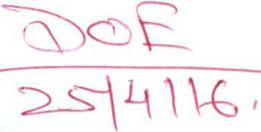 DOE
25/4/16.